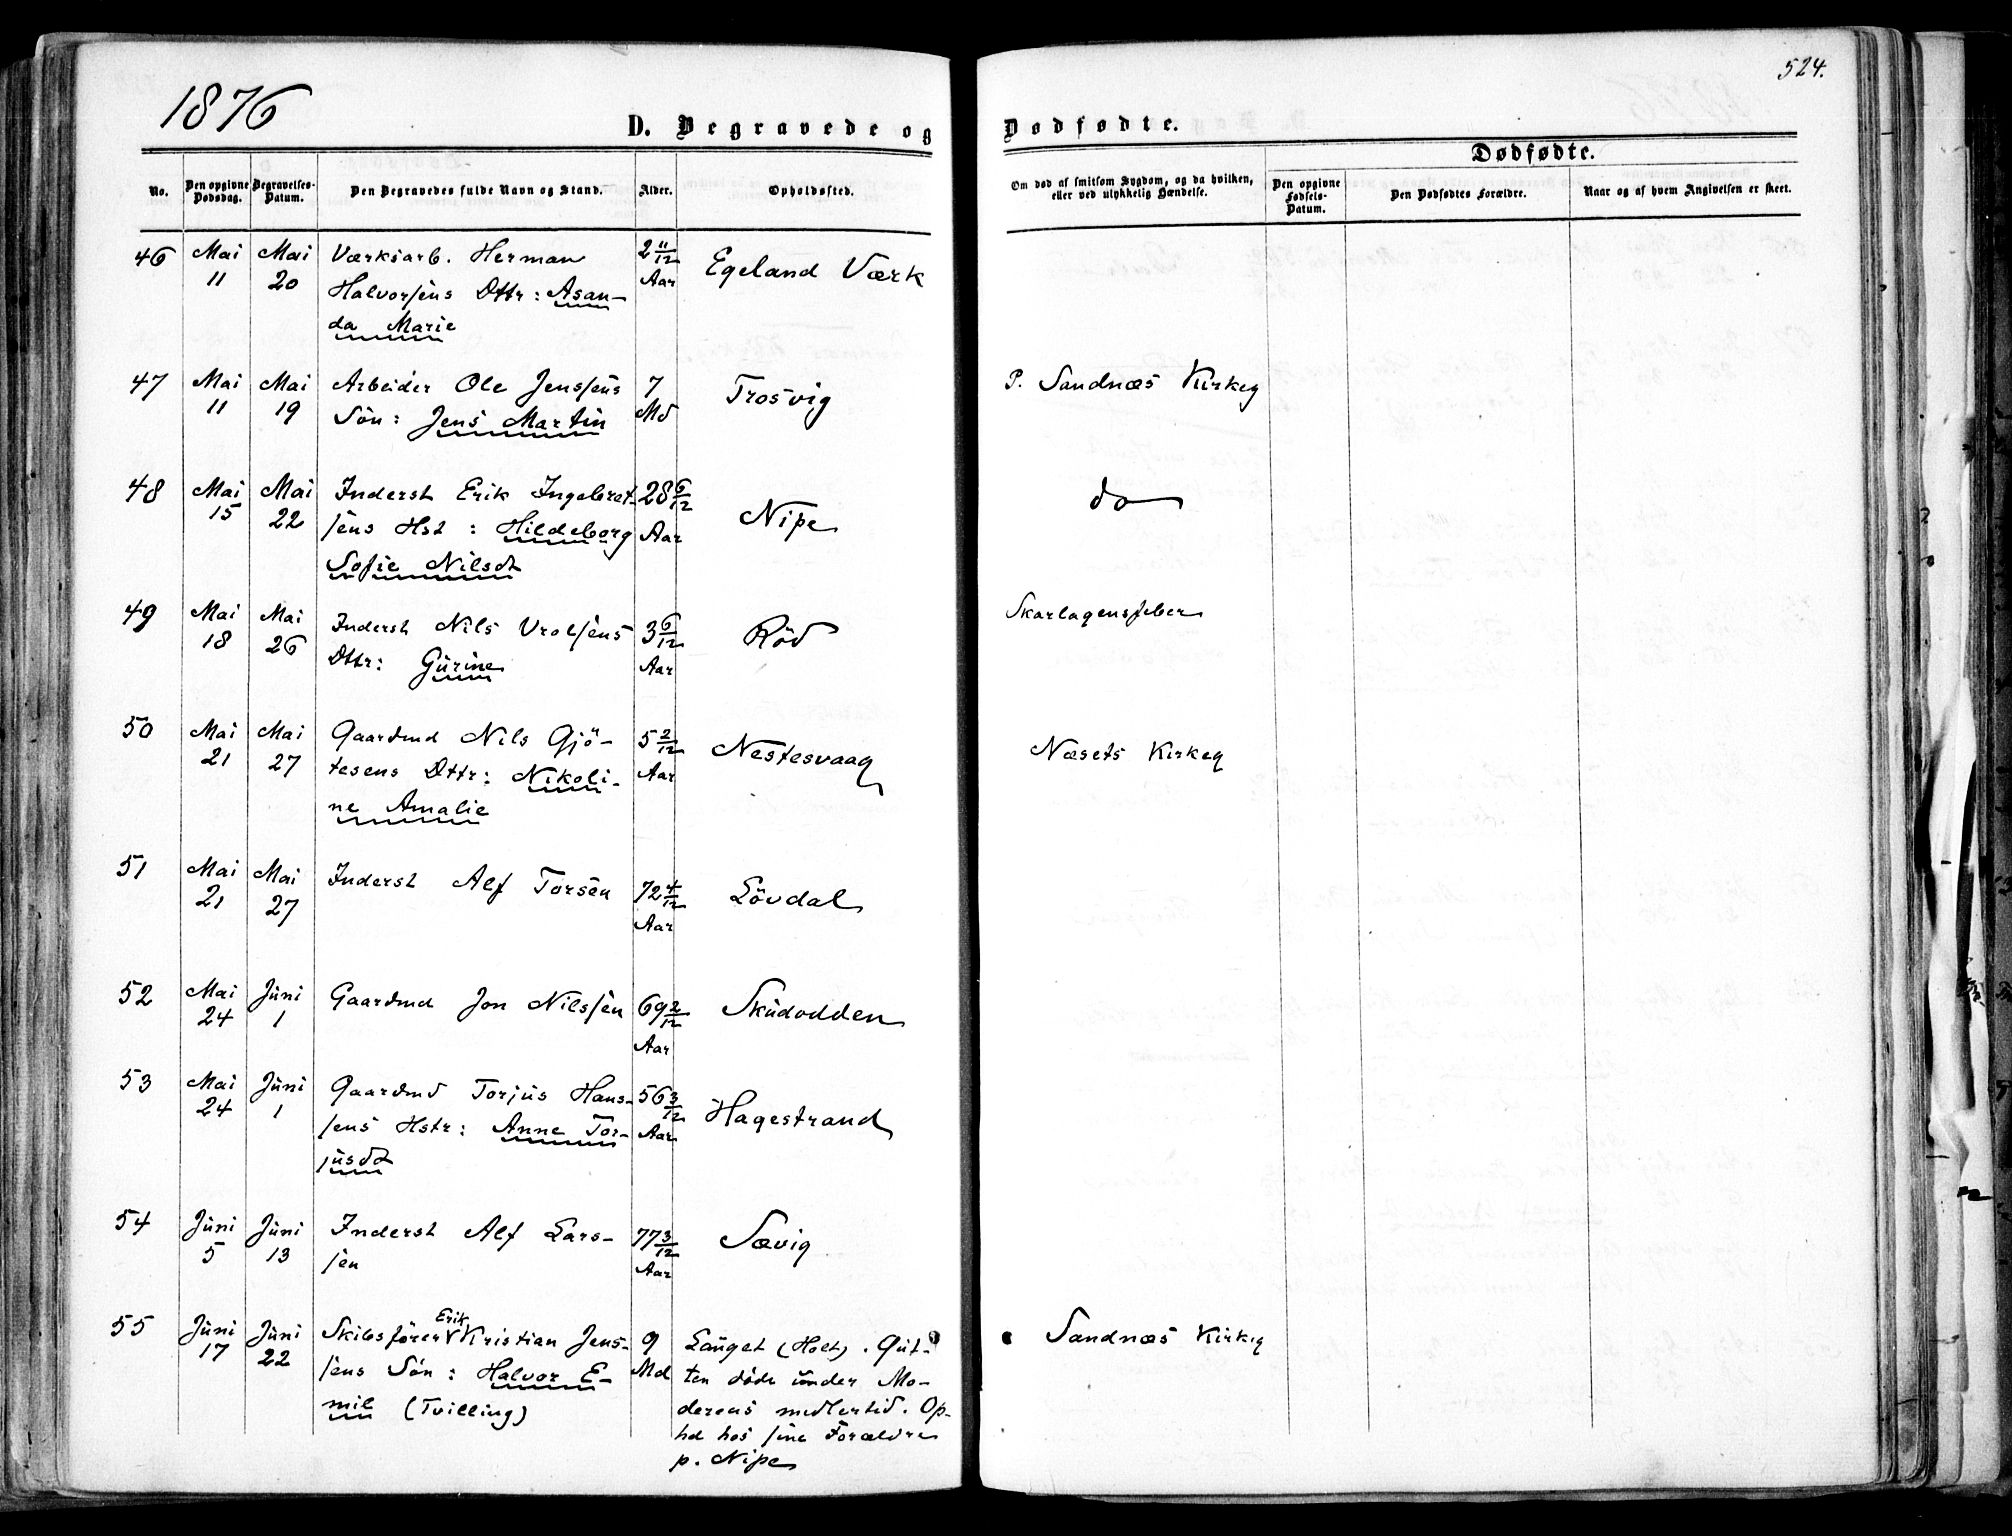 524.
1876
D. Begravede og Dødfødte.
Dødfødte.
No.
Den opgivne Dødsdag.
Begravelses-Datum.
Den Begravedes fulde Navn og Stand.
Alder.
Opholdssted.
Om død af smitsom Sygdom, og da hvilken, eller ved ulykkelig Hændelse.
Den opgivne Fødsels-Datum.
Den Dødfødtes Forældre.
Naar og af hvem Angivelsen er skeet.
46 Mai 11 Mai 20 Værksarb. Herman
Halvorsens Dttr: Asan-
da Marie
2 11/12 Aar
Egeland Værk
47 Mai 11 Mai 19 Arbeider Ole Jenssens
Søn: Jens Martin
7 Md
Trosvig
P. Sandnæs Kirkeg
48 Mai 15 Mai 22 Inderst Erik Ingebret-
sens Hst: Hildeborg
Sofie Nilsdt
28 6/12 Aar
Nipe
do
49 Mai 18 Mai 26 Inderst Nils Vrolsens
Dttr: Gurine
3 6/12 Aar
Röd
Skarlagensfeber
50 Mai 21 Mai 27 Gaardmd Nils Gjö-
tesens Dttr: Nikoli-
ne Amalie
5 2/12 Aar
Nestesvaag
Næsets Kirkeg
51 Mai 21 Mai 27 Inderst Alf Torsen
72 4/12 Aar
Lövdal
52 Mai 24 Juni 1 Gaardmd Jon Nilssen
69 2/12 Aar
Skudodden
53 Mai 24 Juni 1 Gaardmd Torjus Hans-
sens Hstr: Anne Tor-
jusdt
56 3/12 Aar
Hagestrand
54 Juni 5 Juni 13 Inderst Alf Lars-
sen
77 3/12 Aar
Sævig
55 Juni 17 Juni 22 Skibsfører Erik Kristian Jens-
sens Søn: Halvor E-
mil (Tvilling)
9 Md
Lauget (Holt). Gut-
ten døde under Mo-
derens midlertid. Op-
hd hos sine Forældre
p. Nipe
Sandnæs Kirkeg